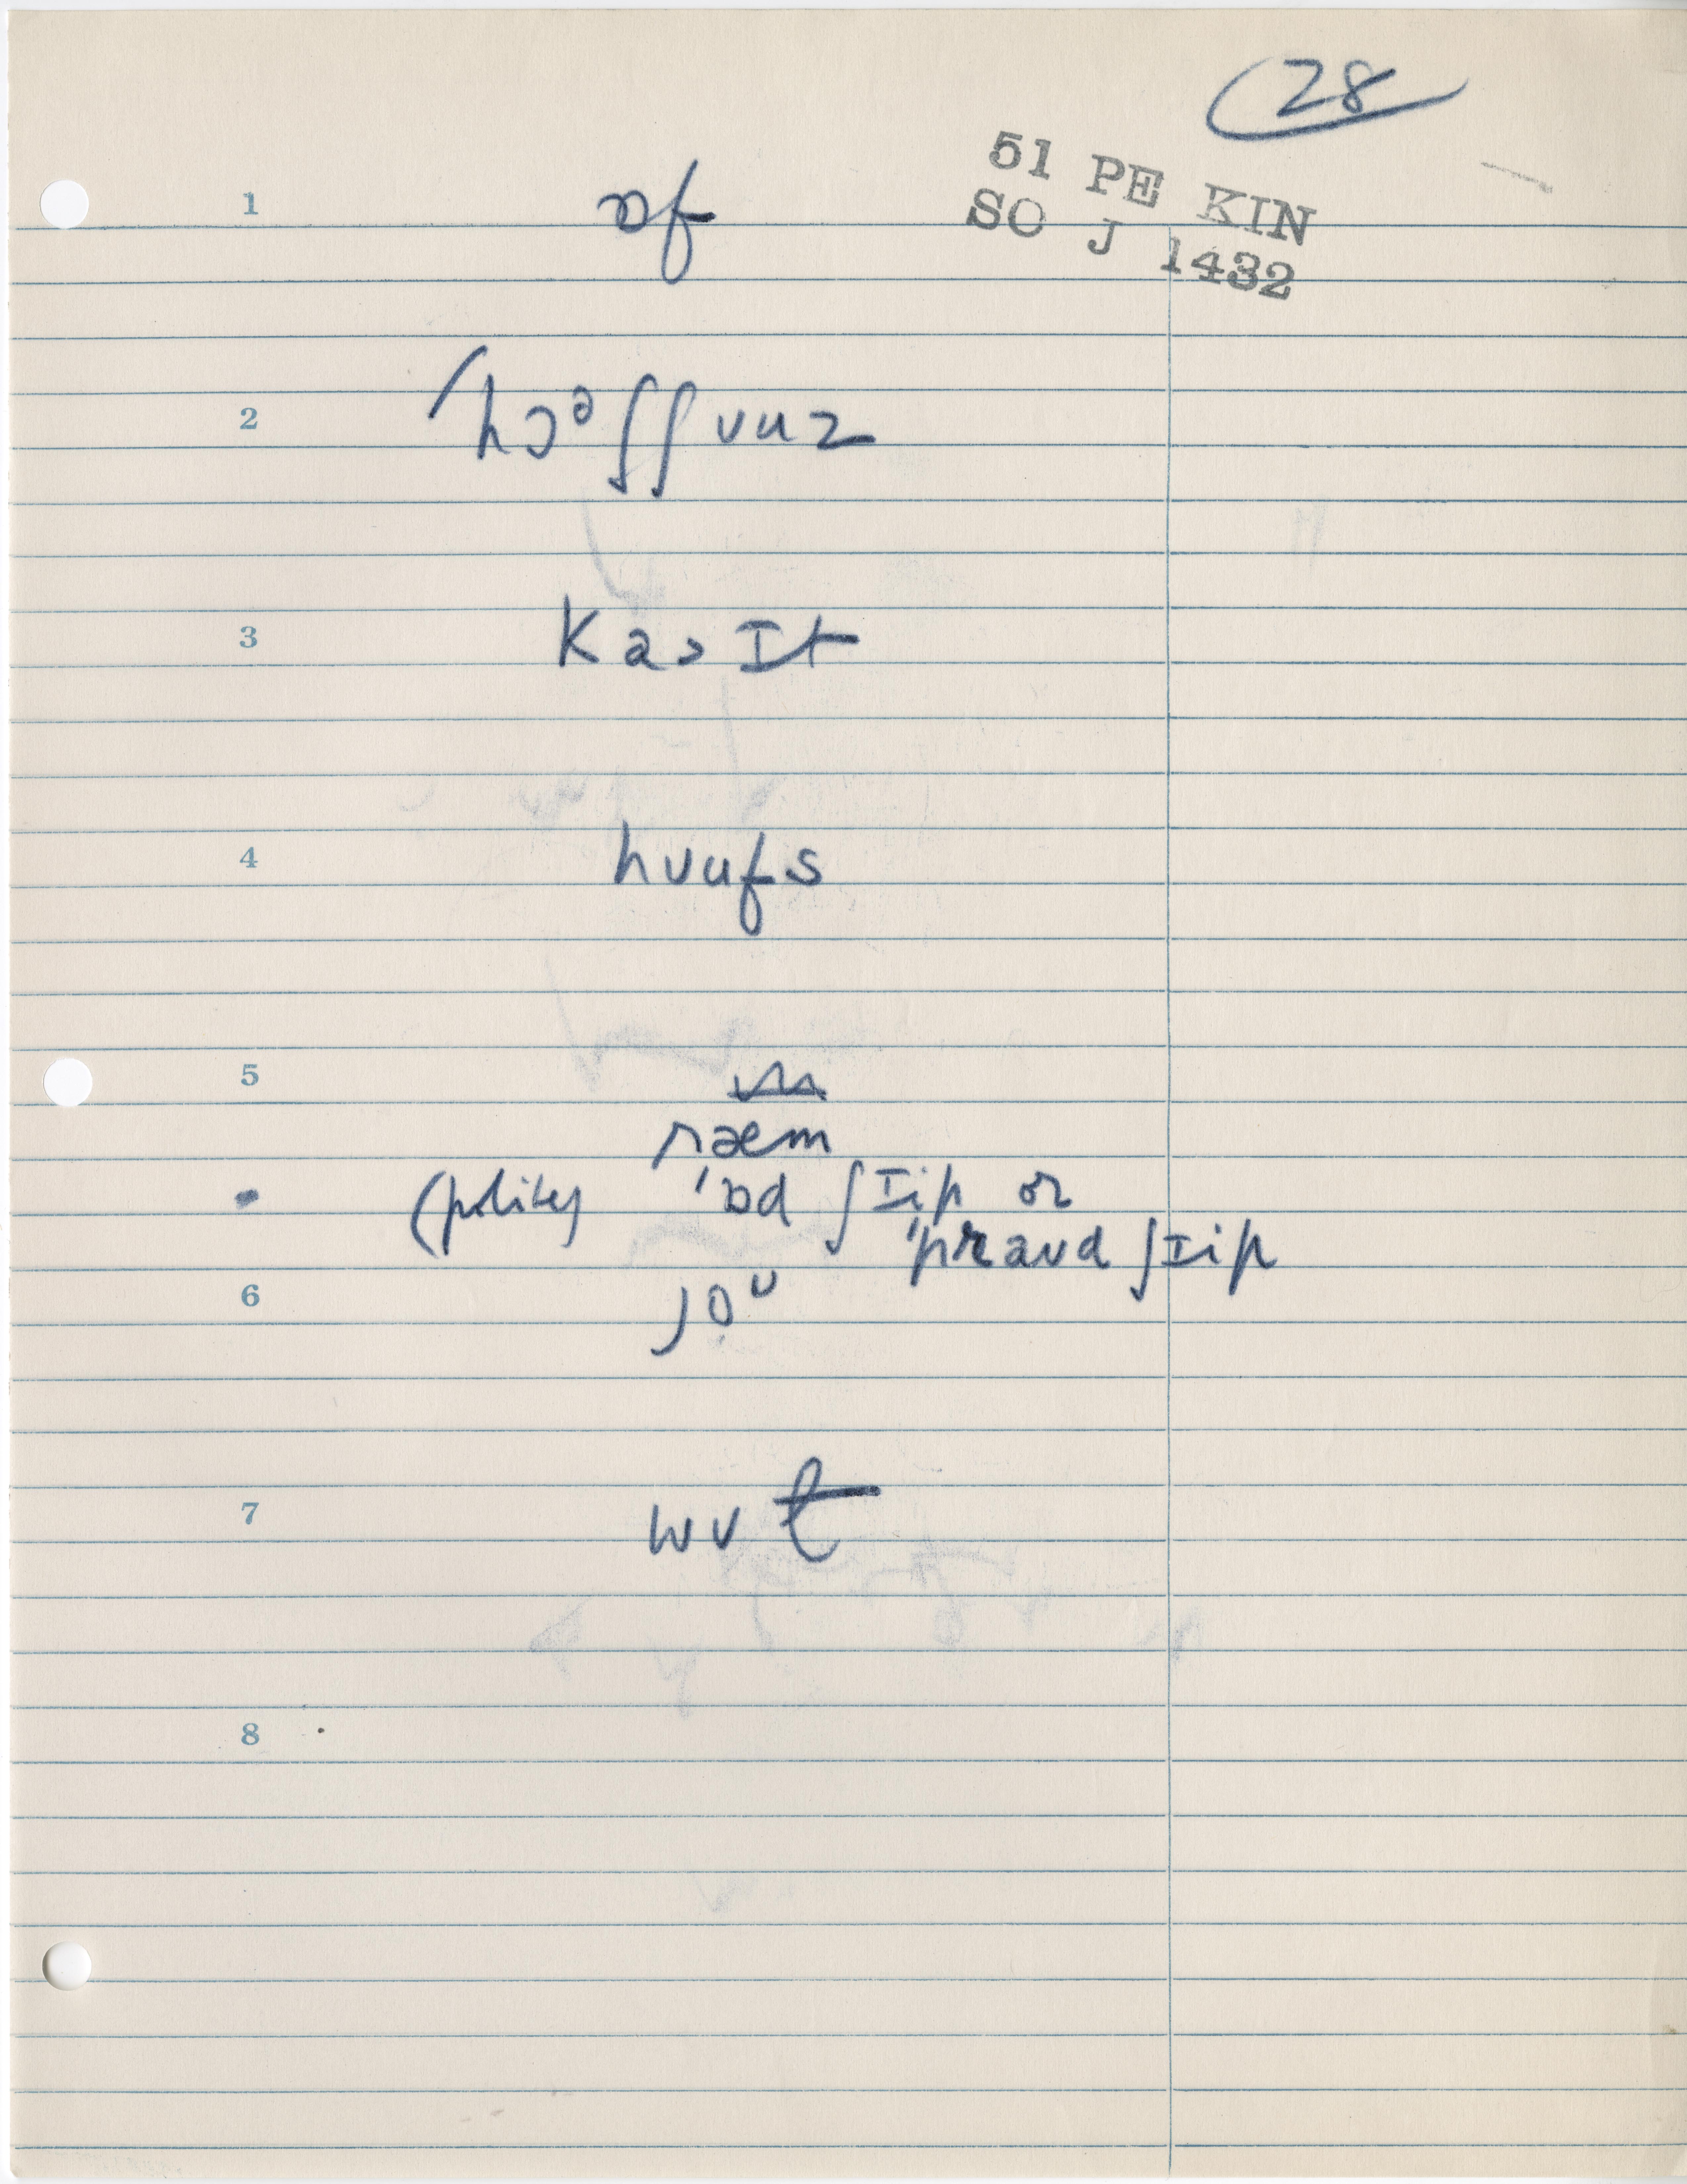 28
51 PE KIN
SO J 1432
1 ɒf
2 ˈhɔᵊʃʃuuz
3 kaɔɪt
4 huufs
5
ræm
(polite) ˈɒd ʃɪip or
ˈpraud ʃɪip
6 joᵘ
7 wʊt
8